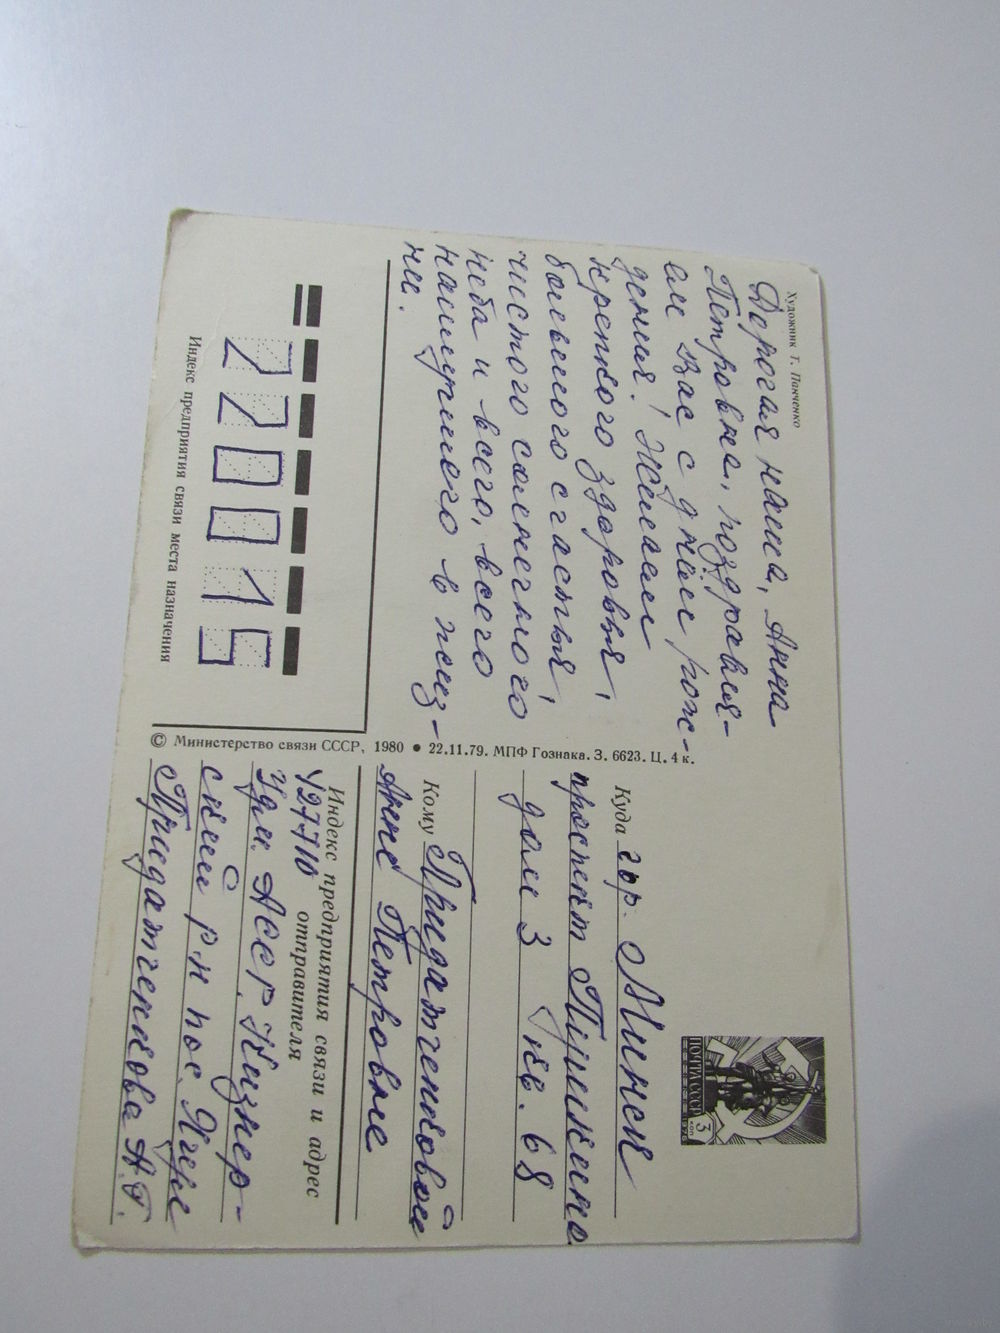 Художник Т. Панченко
Дорогая наша, Анна
Петровна, поздравля-
ем Вас с днём рож-
дения! Желаем
крепкого здоровья,
большого счастья,
чистого солнечного
неба и всего, всего
наилучшего в жиз-
ни.
220015
Индекс предприятия связи места назначения
© Министерство связи СССР, 1980 • 22.11.79. МПФ Гознака. З. 6623. Ц. 4 к.
ПОЧТА СССР
3
КОП
1976
Куда гор. Минск
проспект Пушкина
дом 3 кв. 68
Кому Придатченковой
Анне Петровне
Индекс предприятия связи и адрес
427710 отправителя
Удм. АССР. Кизнер-
ский р-н пос. Ягул
Придатченкова А.Г.